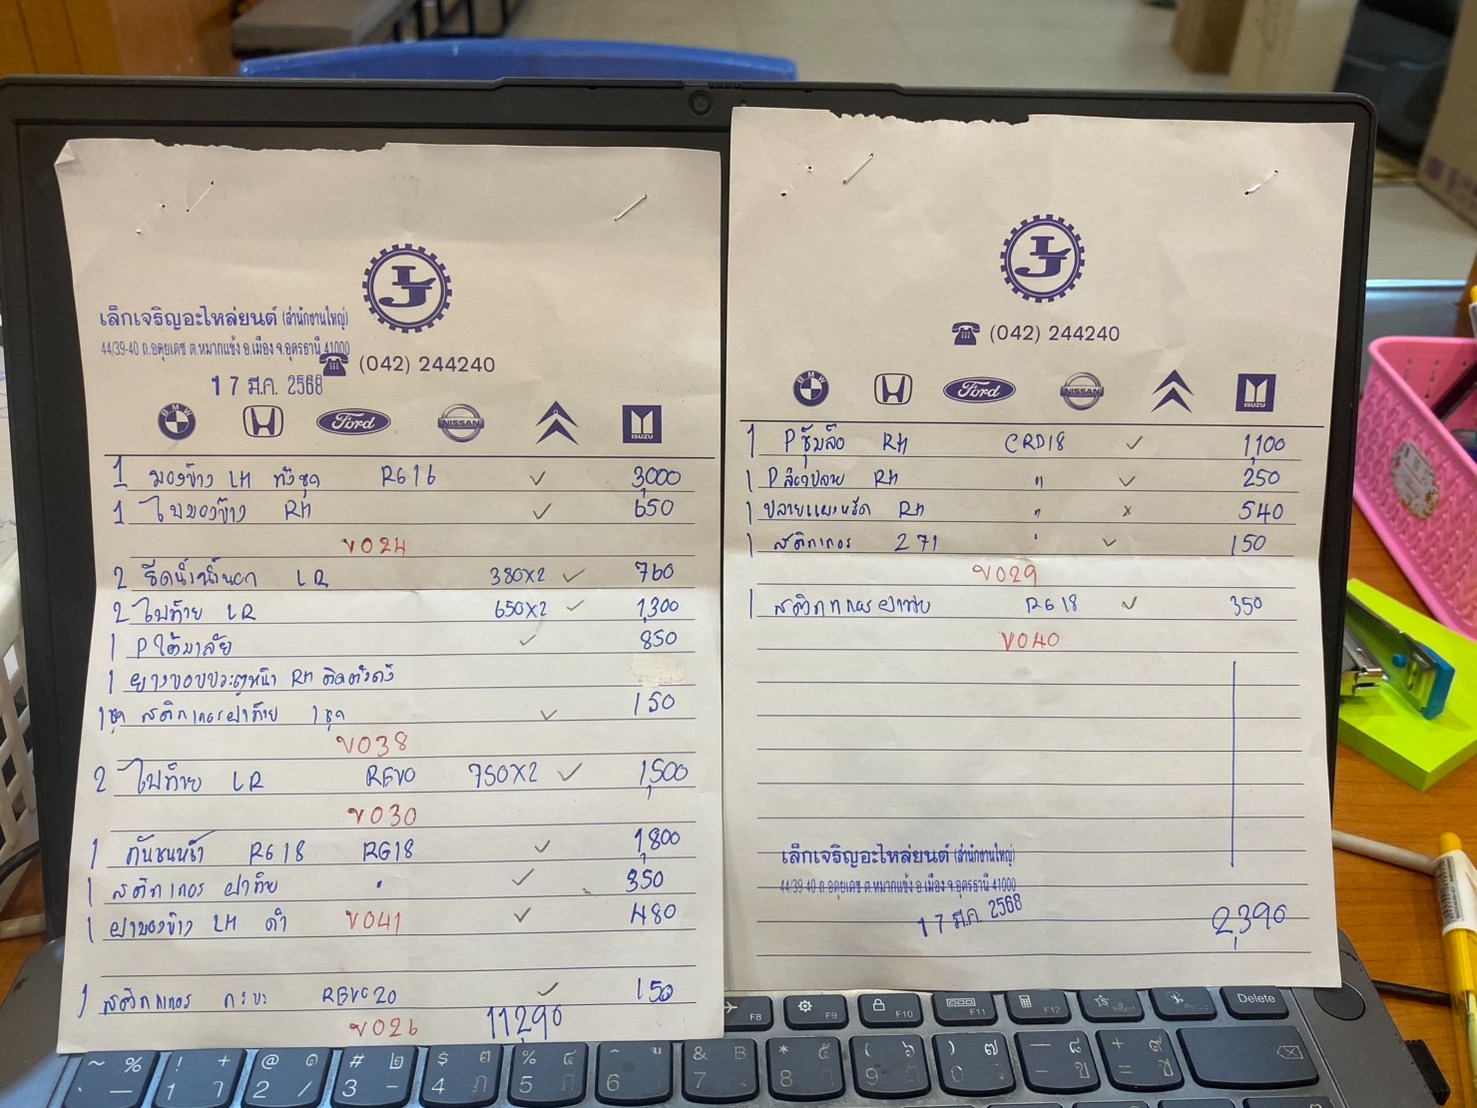 เล็กเจริญอะไหล่ยนต์ (สำนักงานใหญ่)
44/39-40 ถ.อดุยเดช ต.หมากแข้ง อ.เมือง จ.อุดรธานี 41000
(042) 244240
17 มี.ค. 2568
BMW Ford NISSAN ISUZU
1 มองข้าง LH ทั้งชุด RG16 ✓ 3,000
1 ไฟมองข้าง RH ✓ 650
V024
2 LR 380X2 ✓ 760
2 ไฟท้าย LR 650X2 ✓ 1,300
1 P ใต้มาลัย ✓ 850
1 ยางขอบประตูหน้า RH
1ชุด สติกเกอร์ฝาท้าย 1ชุด ✓ 150
V038
2 ไฟท้าย LR REVO 750X2 ✓ 1,500
V030
1 กันชนหน้า RG18 RG18 ✓ 1,800
1 สติกเกอร์ ฝาท้าย " ✓ 350
1 ฝามองข้าง LH ดำ V041 ✓ 480
1 สติกเกอร์ กระบะ REVO20 ✓ 150
V026 11,290
(042) 244240
BMW Ford NISSAN ISUZU
1 P ซุ้มล้อ RH CRD18 ✓ 1,100
1 P RH " ✓ 250
1 RH " x 540
1 สติกเกอร์ 271 " ✓ 150
V029
1 สติกเกอร์ฝาท้าย RG18 ✓ 350
V040
เล็กเจริญอะไหล่ยนต์ (สำนักงานใหญ่)
44/39-40 ถ.อดุยเดช ต.หมากแข้ง อ.เมือง จ.อุดรธานี 41000
17 มี.ค. 2568
2,390
F8 F9 F10 F11 F12 Delete